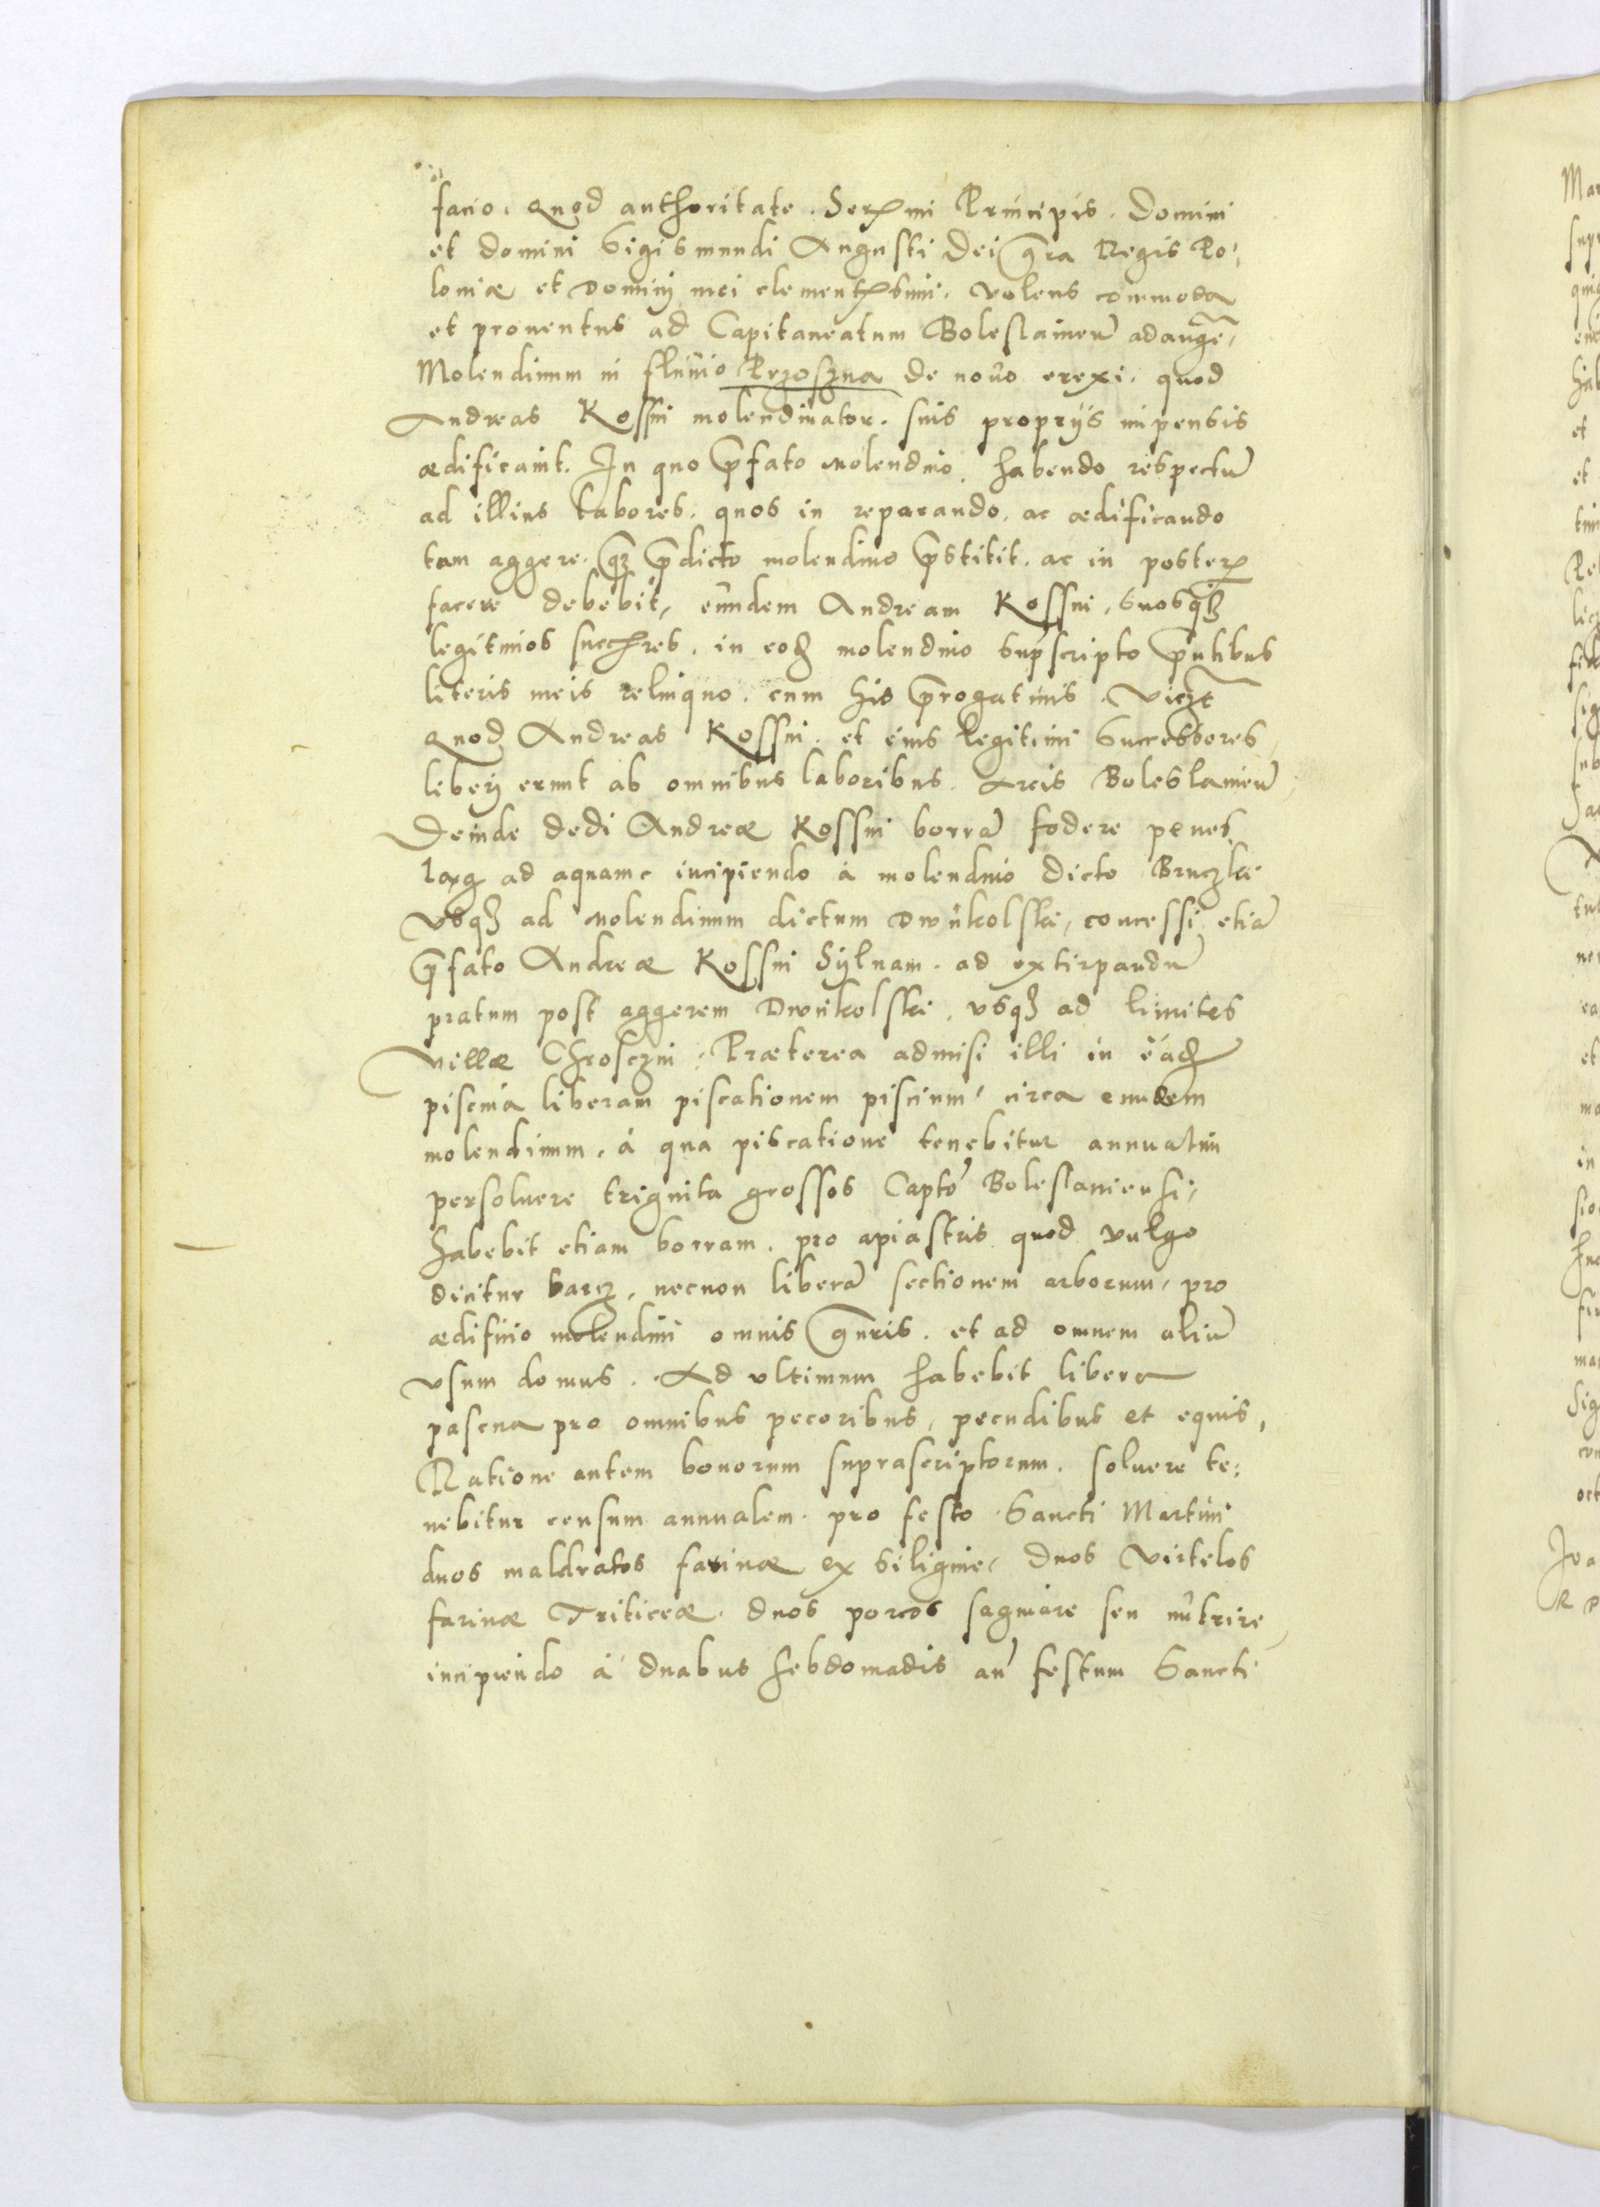 facio. Quod authoritate. Sermi Principis. Domini
et domini Sigismundi Augusti Dei gra Regis Po:
loniæ et Domini mei clementissimi. volens commoda
et prouentus ad Capitaneatum Boleslaineū adauge,
Molendinum in fluuio Przoszna de nouo erexi. quod
Andreas Kossni molendinator. suis proprijs impensis
ædificauit. In quo p̄fato Molendino. habendo respectū
ad illius Labores. quos in reparando, ac ædificando
tam aggere. qz p̄dicto molendino p̄stitit. ac in poster
facere debebit, eundem Andream Kossni, suosqz
legitimos succres. in eod molendino supscripto p̄ntibus
literis meis relinquo. cum his p̄rogatiuis. viczt
Quod Andreas Kossni. et eius legitimi Successores
liberi erunt ab omnibus laboribus. Arcis Boleslaineū
Deinde dedi Andreæ Kossni borrā fodere penes
ad aquam incipiendo á molendino dicto Bruczki
vsqz ad Molendinum dictum Dwukolski, concessi etiā
p̄fato Andreæ Kossni Syluam. ad extirpandū
pratum post aggerem Dwukolski, vsqz ad limites
villæ Chrosczni. Præterea admisi illi in eād
piscina liberam piscationem piscium, circa eundem
molendinum. á qua piscatione tenebitur annuatim
persoluere triginta grossos Capto Boleslaniensi,
habebit etiam borram. pro apiastris quod vulgo
dicitur barcz, necnon liberā sectionem arborum, pro
ædificio molendini omnis gn̄ris. et ad omnem aliū
vsum domus. Ad vltimum habebit libera
pascua pro omnibus pecoribus, pecudibus et equis,
Ratione autem bonorum suprascriptorum. soluere te:
nebitur censum annualem. pro festo Sancti Martini
duos maldratos farinæ ex siligine, duos virtelos
farinæ Triticeæ. duos porcos saginare seu nutrire
incipiendo á duabus hebdomadis an̄ festum Sancti